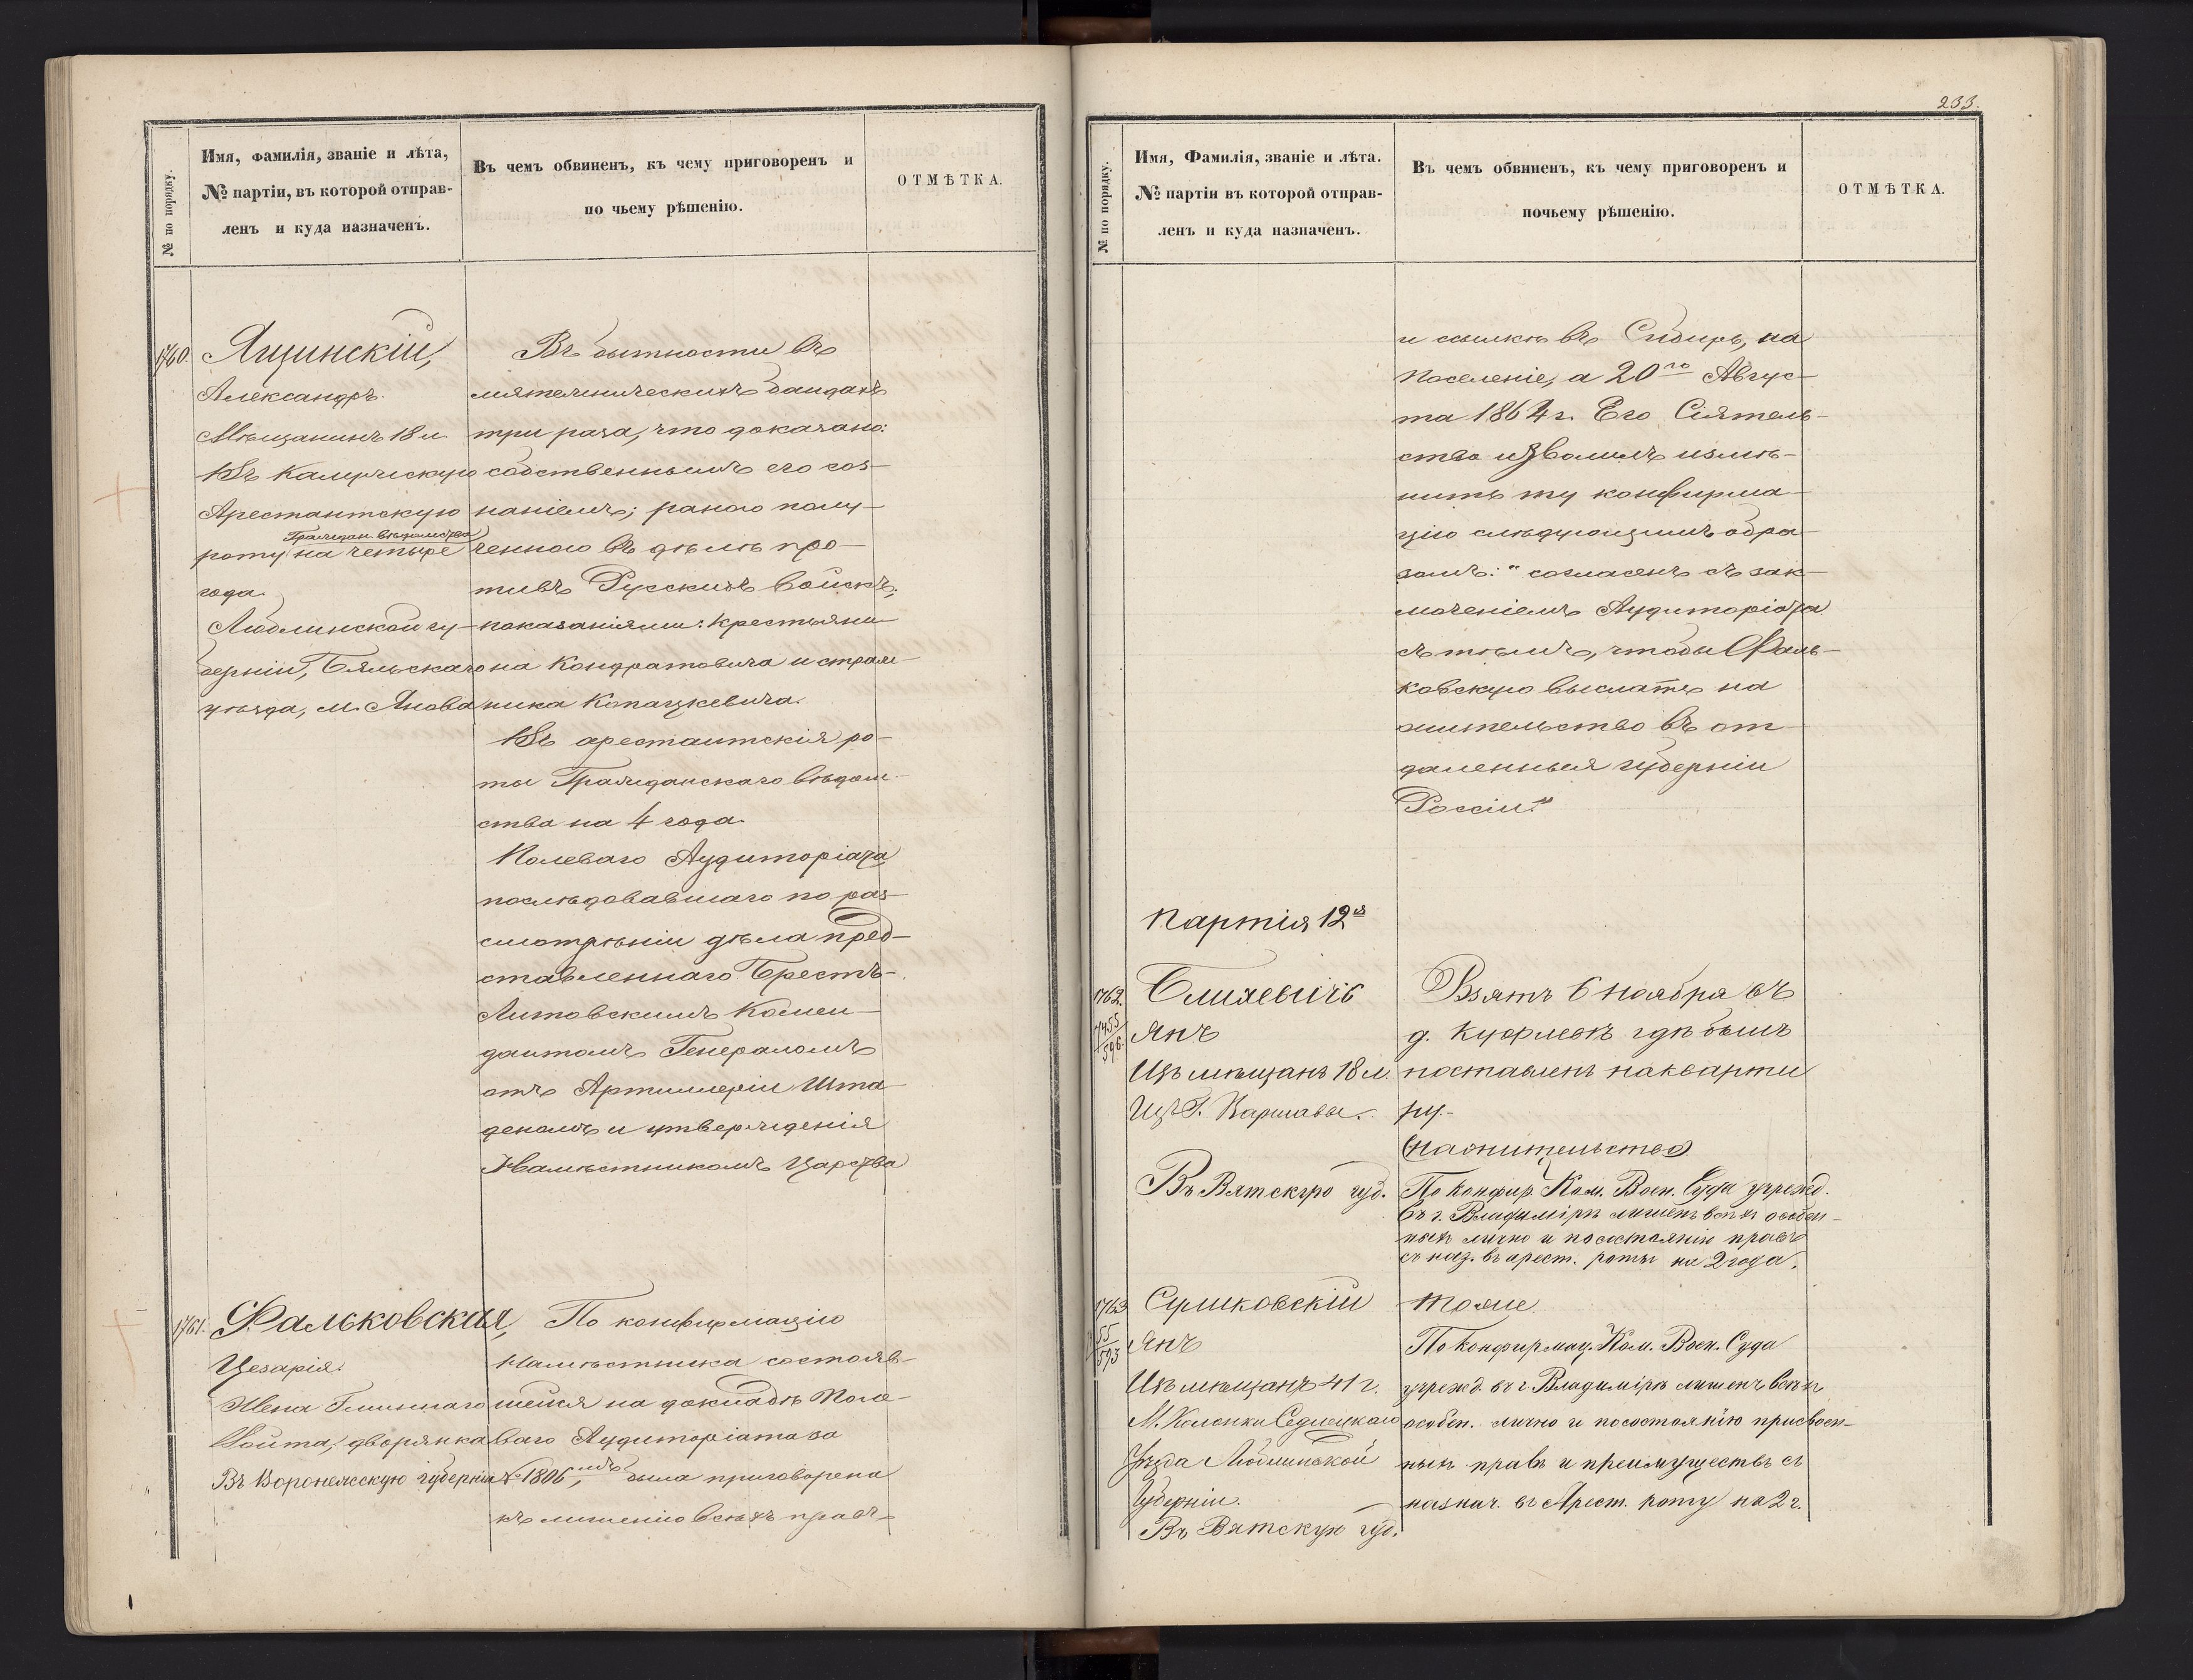 № по порядку.
Имя, фамилія, званіе и лѣта,
№ партіи, въ которой отправ-
ленъ и куда назначенъ.
Въ чемъ обвиненъ, къ чему приговоренъ и
по чьему рѣшенію.
ОТМѢТКА.
1760.
Ящинскій,
Александръ.
Мѣщанинъ 18 л.
Въ Калужскую
Арестантскую
Граждан. вѣдомства
роту на четыре
года.
Люблинской гу-
берніи, Бяльскаго
уѣзда, м. Янова
Въ бытности въ
мятежническихъ бандахъ
три раза, что доказано:
собственнымъ его соз-
наніемъ; раною полу-
ченною въ дѣлѣ про-
тивъ Русскихъ войскъ;
показаніями: крестьяни-
на Кондратовича и страж-
ника Копацкевича.
Въ арестантскія ро-
ты Гражданскаго вѣдом-
ства на 4 года.
Полеваго Аудиторіата
послѣдовавшаго по раз-
смотрѣніи дѣла пред-
ставленнаго Брестъ-
Литовскимъ Комен-
дантомъ Генераломъ
отъ Артиллеріи Шта-
деномъ и утвержденія
Намѣстникомъ Царства
1761.
Фальковская,
Цезарія.
Жена Гминнаго
Войта, дворянка
Въ Воронежскую губернію
По конфирмаціи
Намѣстника состояв-
шейся на докладѣ Поле-
ваго Аудиторіата за
№ 1806, была приговорена
къ лишенію всѣхъ правъ
233.
№ по порядку.
Имя, Фамилія, званіе и лѣта.
№ партіи въ которой отправ-
ленъ и куда назначенъ.
Въ чемъ обвиненъ, къ чему приговоренъ и
почьему рѣшенію.
ОТМѢТКА.
и ссылкѣ въ Сибирь, на
поселеніе, а 20го Авгус-
та 1864 г. Его Сіятель-
ство изволилъ измѣ-
нить ту конфирма-
цію слѣдующимъ обра-
зомъ: "согласенъ съ зак-
люченіемъ Аудиторіата
съ тѣмъ, чтобы Фаль-
ковскую выслать на
жительство въ от-
даленныя губерніи
Россіи."
Партія 12я
1762.
Янъ
Изъ мѣщанъ 18 л.
Изъ Г. Варшавы.
Въ Вятскую губ.
Взятъ 6 ноября въ
д. гдѣ былъ
поставленъ на кварти
ру.
(на жительство)
По конфир. Ком. Воен. Суда учрежд.
въ г. Владимірѣ лишенъ всѣхъ особен-
ныхъ лично и по состоянію правъ
съ наз. въ арест. роты на 2 года.
1763
55
593
Сулиховскій
Янъ
Изъ мѣщанъ 41 г.
М. Седлецкаго
Уѣзда Люблинской
Губерніи.
Въ Вятскую губ.
тоже.
По конфирмац. Ком. Воен. Суда
учрежд. въ г. Владимірѣ лишенъ всѣхъ
особен. лично и по состоянію присвоен-
ныхъ правъ и преимуществъ съ
назнач. въ Арест. роту на 2 г.